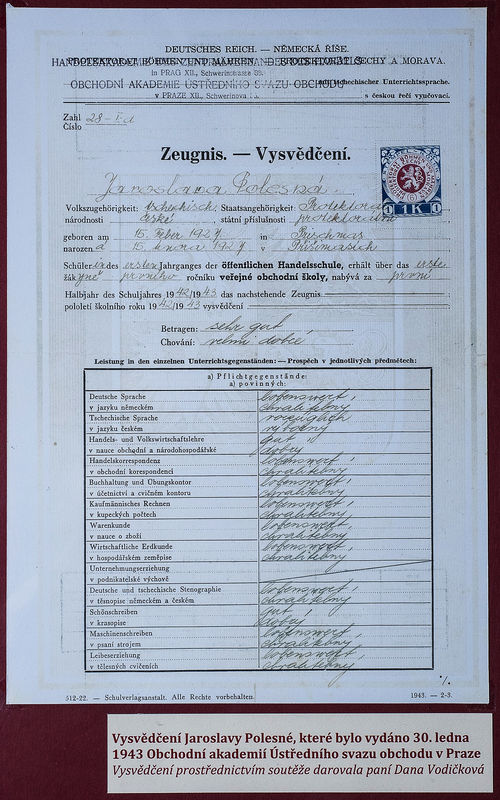 DEUTSCHES REICH. — NĚMECKÁ ŘÍŠE.
PROTEKTORAT BÖHMEN UND MÄHREN. — PROTEKTORÁT ČECHY A MORAVA.
in PRAG XII., Schwerinstrasse
OBCHODNÍ AKADEMIE ÚSTŘEDNÍHO SVAZU OBCHODU
mit tschechischer Unterrichtssprache.
v PRAZE XII., Schwerinova
s českou řečí vyučovací.
Zahl
Číslo
28-I.d
Zeugnis. — Vysvědčení.
1 1K 1
Jaroslava Polesná
Volkszugehörigkeit: tschechisch, Staatsangehörigkeit: Protektorat
národnosti české, státní příslušnosti protektorátní
geboren am 15. Feber 1927 in
narozená 15. února 1927 v
Schülerin des ersten Jahrganges der öffentlichen Handelsschule, erhält über das erste
žákyně prvního ročníku veřejné obchodní školy, nabývá za první
Halbjahr des Schuljahres 1942/1943 das nachstehende Zeugnis
pololetí školního roku 1942/1943 vysvědčení
Betragen: sehr gut,
Chování: velmi dobré
Leistung in den einzelnen Unterrichtsgegenständen: — Prospěch v jednotlivých předmětech:
a) Pflichtgegenstände:
a) povinných:
Deutsche Sprache lobenswert,
v jazyku německém chvalitebný
Tschechische Sprache vorzüglich
v jazyku českém výborný
Handels- und Volkswirtschaftslehre gut,
v nauce obchodní a národohospodářské dobrý
Handelskorrespondenz lobenswert,
v obchodní korespondenci chvalitebný
Buchhaltung und Übungskontor lobenswert,
v účetnictví a cvičném kontoru chvalitebný
Kaufmännisches Rechnen lobenswert,
v kupeckých počtech chvalitebný
Warenkunde lobenswert,
v nauce o zboží chvalitebný
Wirtschaftliche Erdkunde lobenswert,
v hospodářském zeměpise chvalitebný
Unternehmungserziehung
v podnikatelské výchově
Deutsche und tschechische Stenographie lobenswert,
v těsnopise německém a českém chvalitebný
Schönschreiben gut
v krasopise dobrý
Maschinenschreiben lobenswert,
v psaní strojem chvalitebný
Leibeserziehung lobenswert,
v tělesných cvičeních chvalitebný
./.
512-22. — Schulverlagsanstalt. Alle Rechte vorbehalten.
1943. — 2-3.
Vysvědčení Jaroslavy Polesné, které bylo vydáno 30. ledna
1943 Obchodní akademií Ústředního svazu obchodu v Praze
Vysvědčení prostřednictvím soutěže darovala paní Dana Vodičková